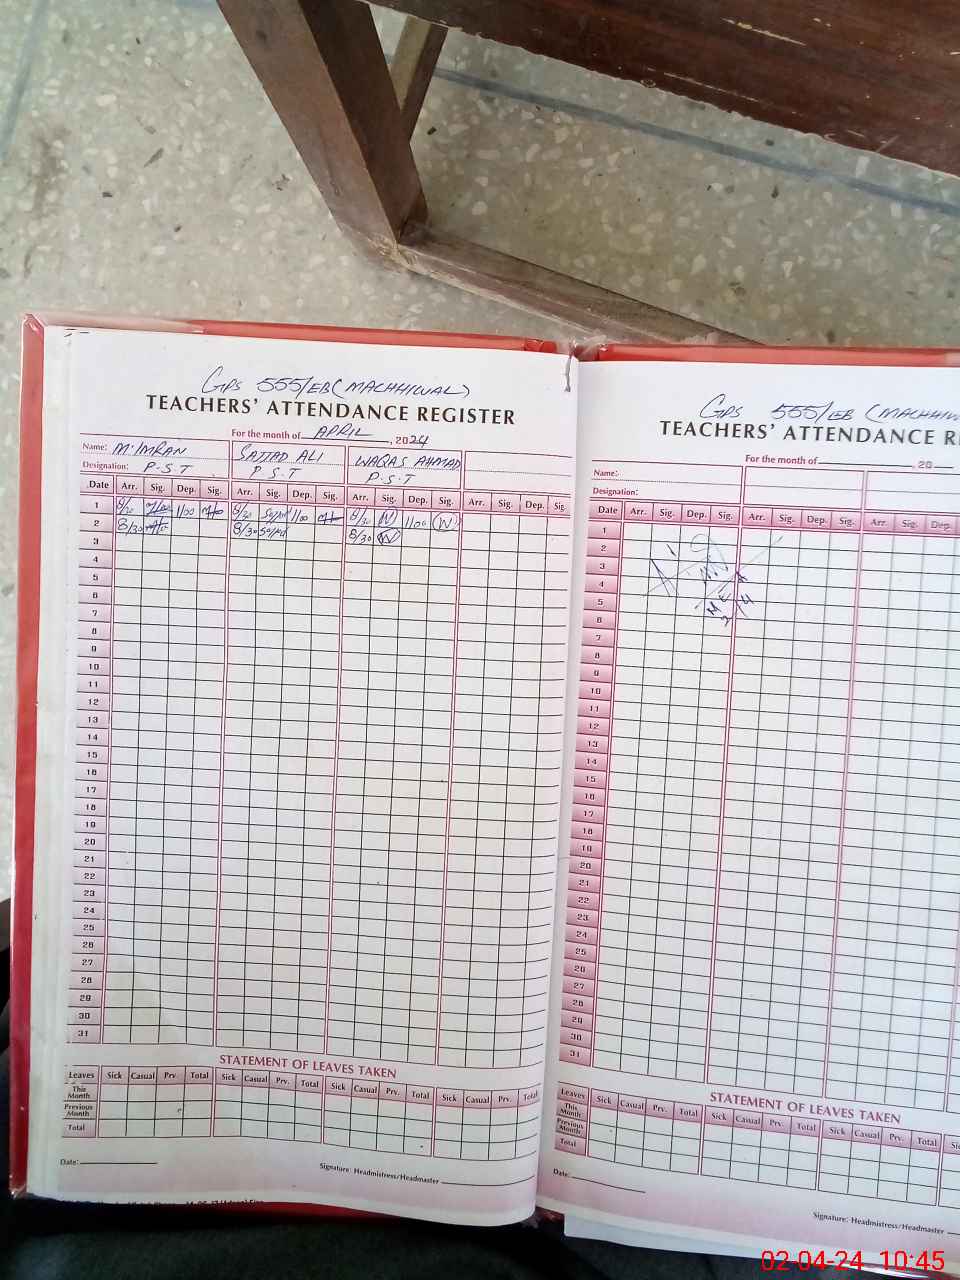 GPS 555/EB (MACHHIWAL)
TEACHERS' ATTENDANCE REGISTER
For the month of APRIL, 2024
Name: M. IMRAN SAJJAD ALI WAQAS AHMAD
Designation: P.S.T P.S.T P.S.T
Date Arr. Sig. Dep. Sig. Arr. Sig. Dep. Sig. Arr. Sig. Dep. Sig. Arr. Sig. Dep. Sig.
1 8/30 1100 8/30 1100 8/30 W 1100 W
2 8/30 8/30 8/30 W
3
4
5
6
7
8
9
10
11
12
13
14
15
16
17
18
19
20
21
22
23
24
25
26
27
28
29
30
31
STATEMENT OF LEAVES TAKEN
Leaves Sick Casual Prv. Total Sick Casual Prv. Total Sick Casual Prv. Total Sick Casual Prv. Total
This Month
Previous Month
Total
Date:
Signature: Headmistress/Headmaster
GPS 555/EB (MACHHIW
TEACHERS' ATTENDANCE R
For the month of , 20
Name:
Designation:
Date Arr. Sig. Dep. Sig. Arr. Sig. Dep. Sig. Arr. Sig. Dep.
1
2
3
4
5
6
7
8
9
10
11
12
13
14
15
16
17
18
19
20
21
22
23
24
25
26
27
28
29
30
31
STATEMENT OF LEAVES TAKEN
Leaves Sick Casual Prv. Total Sick Casual Prv. Total Sick Casual Prv. Total
This Month
Previous Month
Total
Date:
Signature: Headmistress/Headmaster
02-04-24 10:45